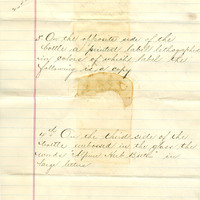 3d On the opposite side of the
bottle a printed label lithographed
in colors of which label the
following is a copy
4th. On the third side of the
bottle embossed in the glass the
words Alpine Herb Bitters in
large letters